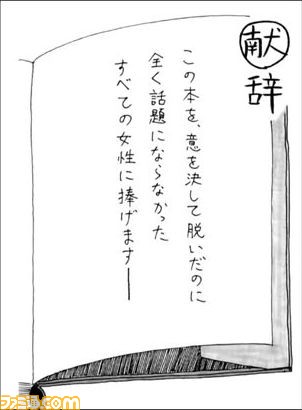 献辞
この本を、意を決して脱いだのに
全く話題にならなかった
すべての女性に捧げます──
ファミ通.com